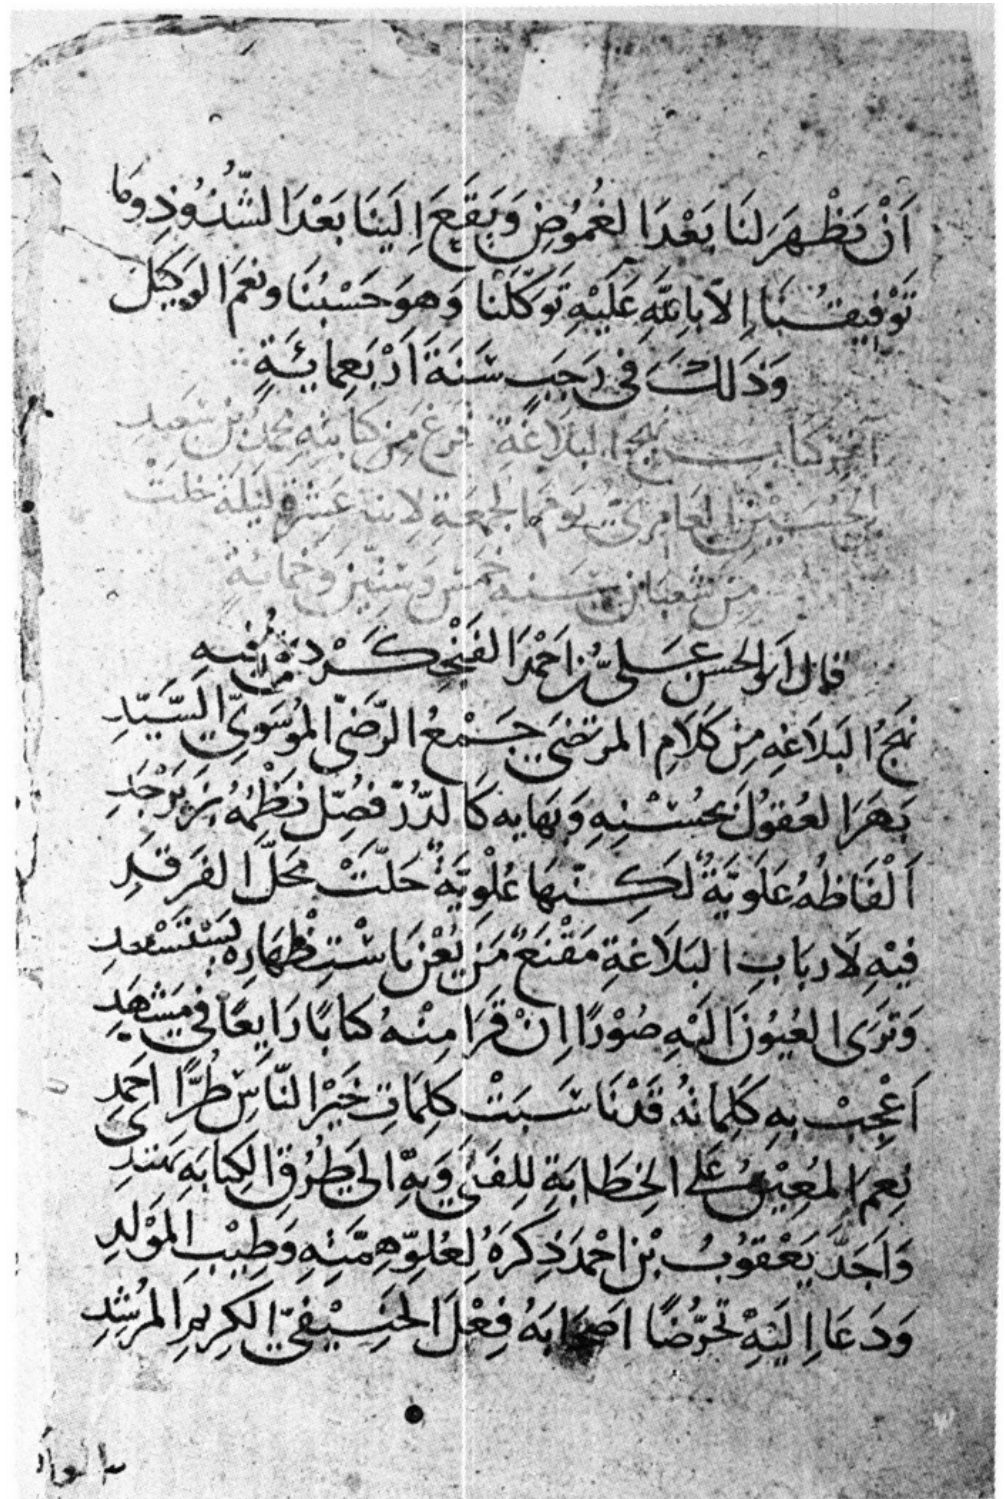 اَنْ يَظْهَرَ لَنَا بَعْدَ الغُمُوضِ وَيَقَعَ اِلَيْنَا بَعْدَ الشُّذُوذِ وَمَا
تَوْفِيقُنَا اِلَّا بِاللّٰهِ عَلَيْهِ تَوَكَّلْنَا وَهُوَ حَسْبُنَا وَنِعْمَ الوَكِيلُ
وَذَلِكَ فِي رَجَبٍ سَنَةَ اَرْبَعِمِائَةٍ
آخِرُ كِتَابِ نَهْجِ البَلَاغَةِ فَرَغَ مِنْ كِتَابَتِهِ مُحَمَّدُ بْنُ سَعِيدِ
الحُسَيْنِ العَامِرِيُّ يَوْمَ الجُمْعَةِ لِاثْنَتَيْ عَشْرَةَ لَيْلَةً خَلَتْ
مِنْ شَعْبَانَ سَنَةَ خَمْسٍ وَسِتِّينَ وَخَمْسِمِائَةٍ
قال ابو الحسن عَلِىُّ بْنُ اَحْمَدَ الفَنْجْكَرْدِىُّ فِيهِ
نَهْجُ البَلَاغَهِ مِنْ كَلَامِ المرتَضَى جَمْعُ الرَّضِيِّ المُوسَوِيِّ السَّيِّدِ
بَهَرَ العُقُولَ بِحُسْنِهِ وَبَهَايِهِ كَالدُّرِّ فُصِّلَ نَظْمُهُ بِزَبَرْجَدِ
اَلْفَاظُهُ عَلَوِيَّةٌ لَكِنَّهَا عُلْوِيَّةٌ حَلَّتْ مَحَلَّ الفَرقَدِ
فِيْهِ لِاَربَابِ البَلَاغَةِ مَقْنَعٌ مَنْ يُعْنَ بِاسْتِظْهَارِهِ يَسْتَسْعِدِ
وَتَرَى العُيُونَ اِلَيْهِ صُوْرًا اِنْ قَرَا مِنْهُ كتابًا رَايِعًا فِي مَشْهَدِ
اَعْجِبْ بِهِ كَلِمَاتُهُ قَدْ نَاسَبَتْ كَلِمَاتِ خَيْرِ النَّاسِ طُرًّا اَحْمَدِ
نِعمَ المُعِيْنُ عَلَى الخِطَابَةِ لِلفَتَى وَبِهِ اِلَى طُرُقِ الكِتَابَهِ يَهْتَدِى
وَاَجَدَّ يَعْقُوبُ بْنُ اَحْمَدَ ذِكرَهُ لِعُلُوِّ هِمَّتِهِ وَطِيْبِ المَوْلِدِ
وَدَعَا اِلَيْهِ تَحَرُّضًا اَصْحَابَهُ فِعْلَ الحَنِيْفِيِّ الكَرِيمِ المُرْشِدِ